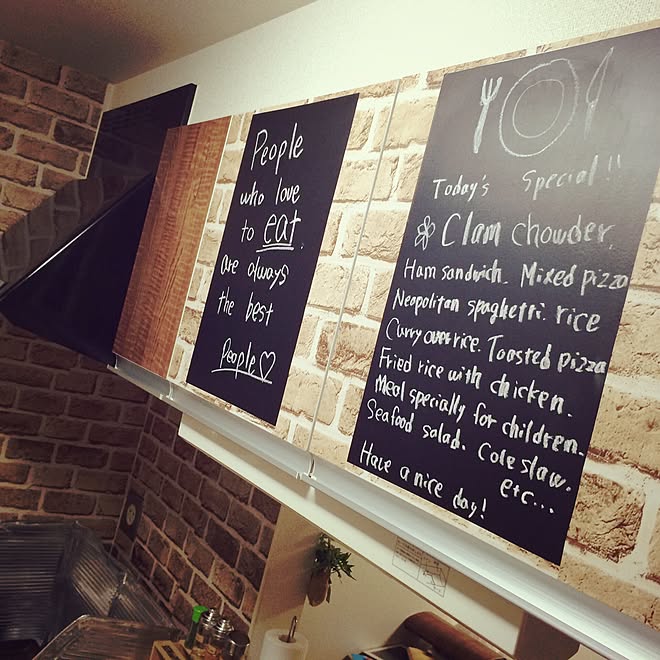 People
who love
to eat.
are always
the best
People♡
Today's Special!!
Clam chowder.
Ham sandwich. Mixed pizza
Neapolitan spaghetti. rice
Curry over rice. Toasted pizza
Fried rice with chicken.
Meal specially for children.
Seafood salad. Cole slaw.
etc...
Have a nice day!